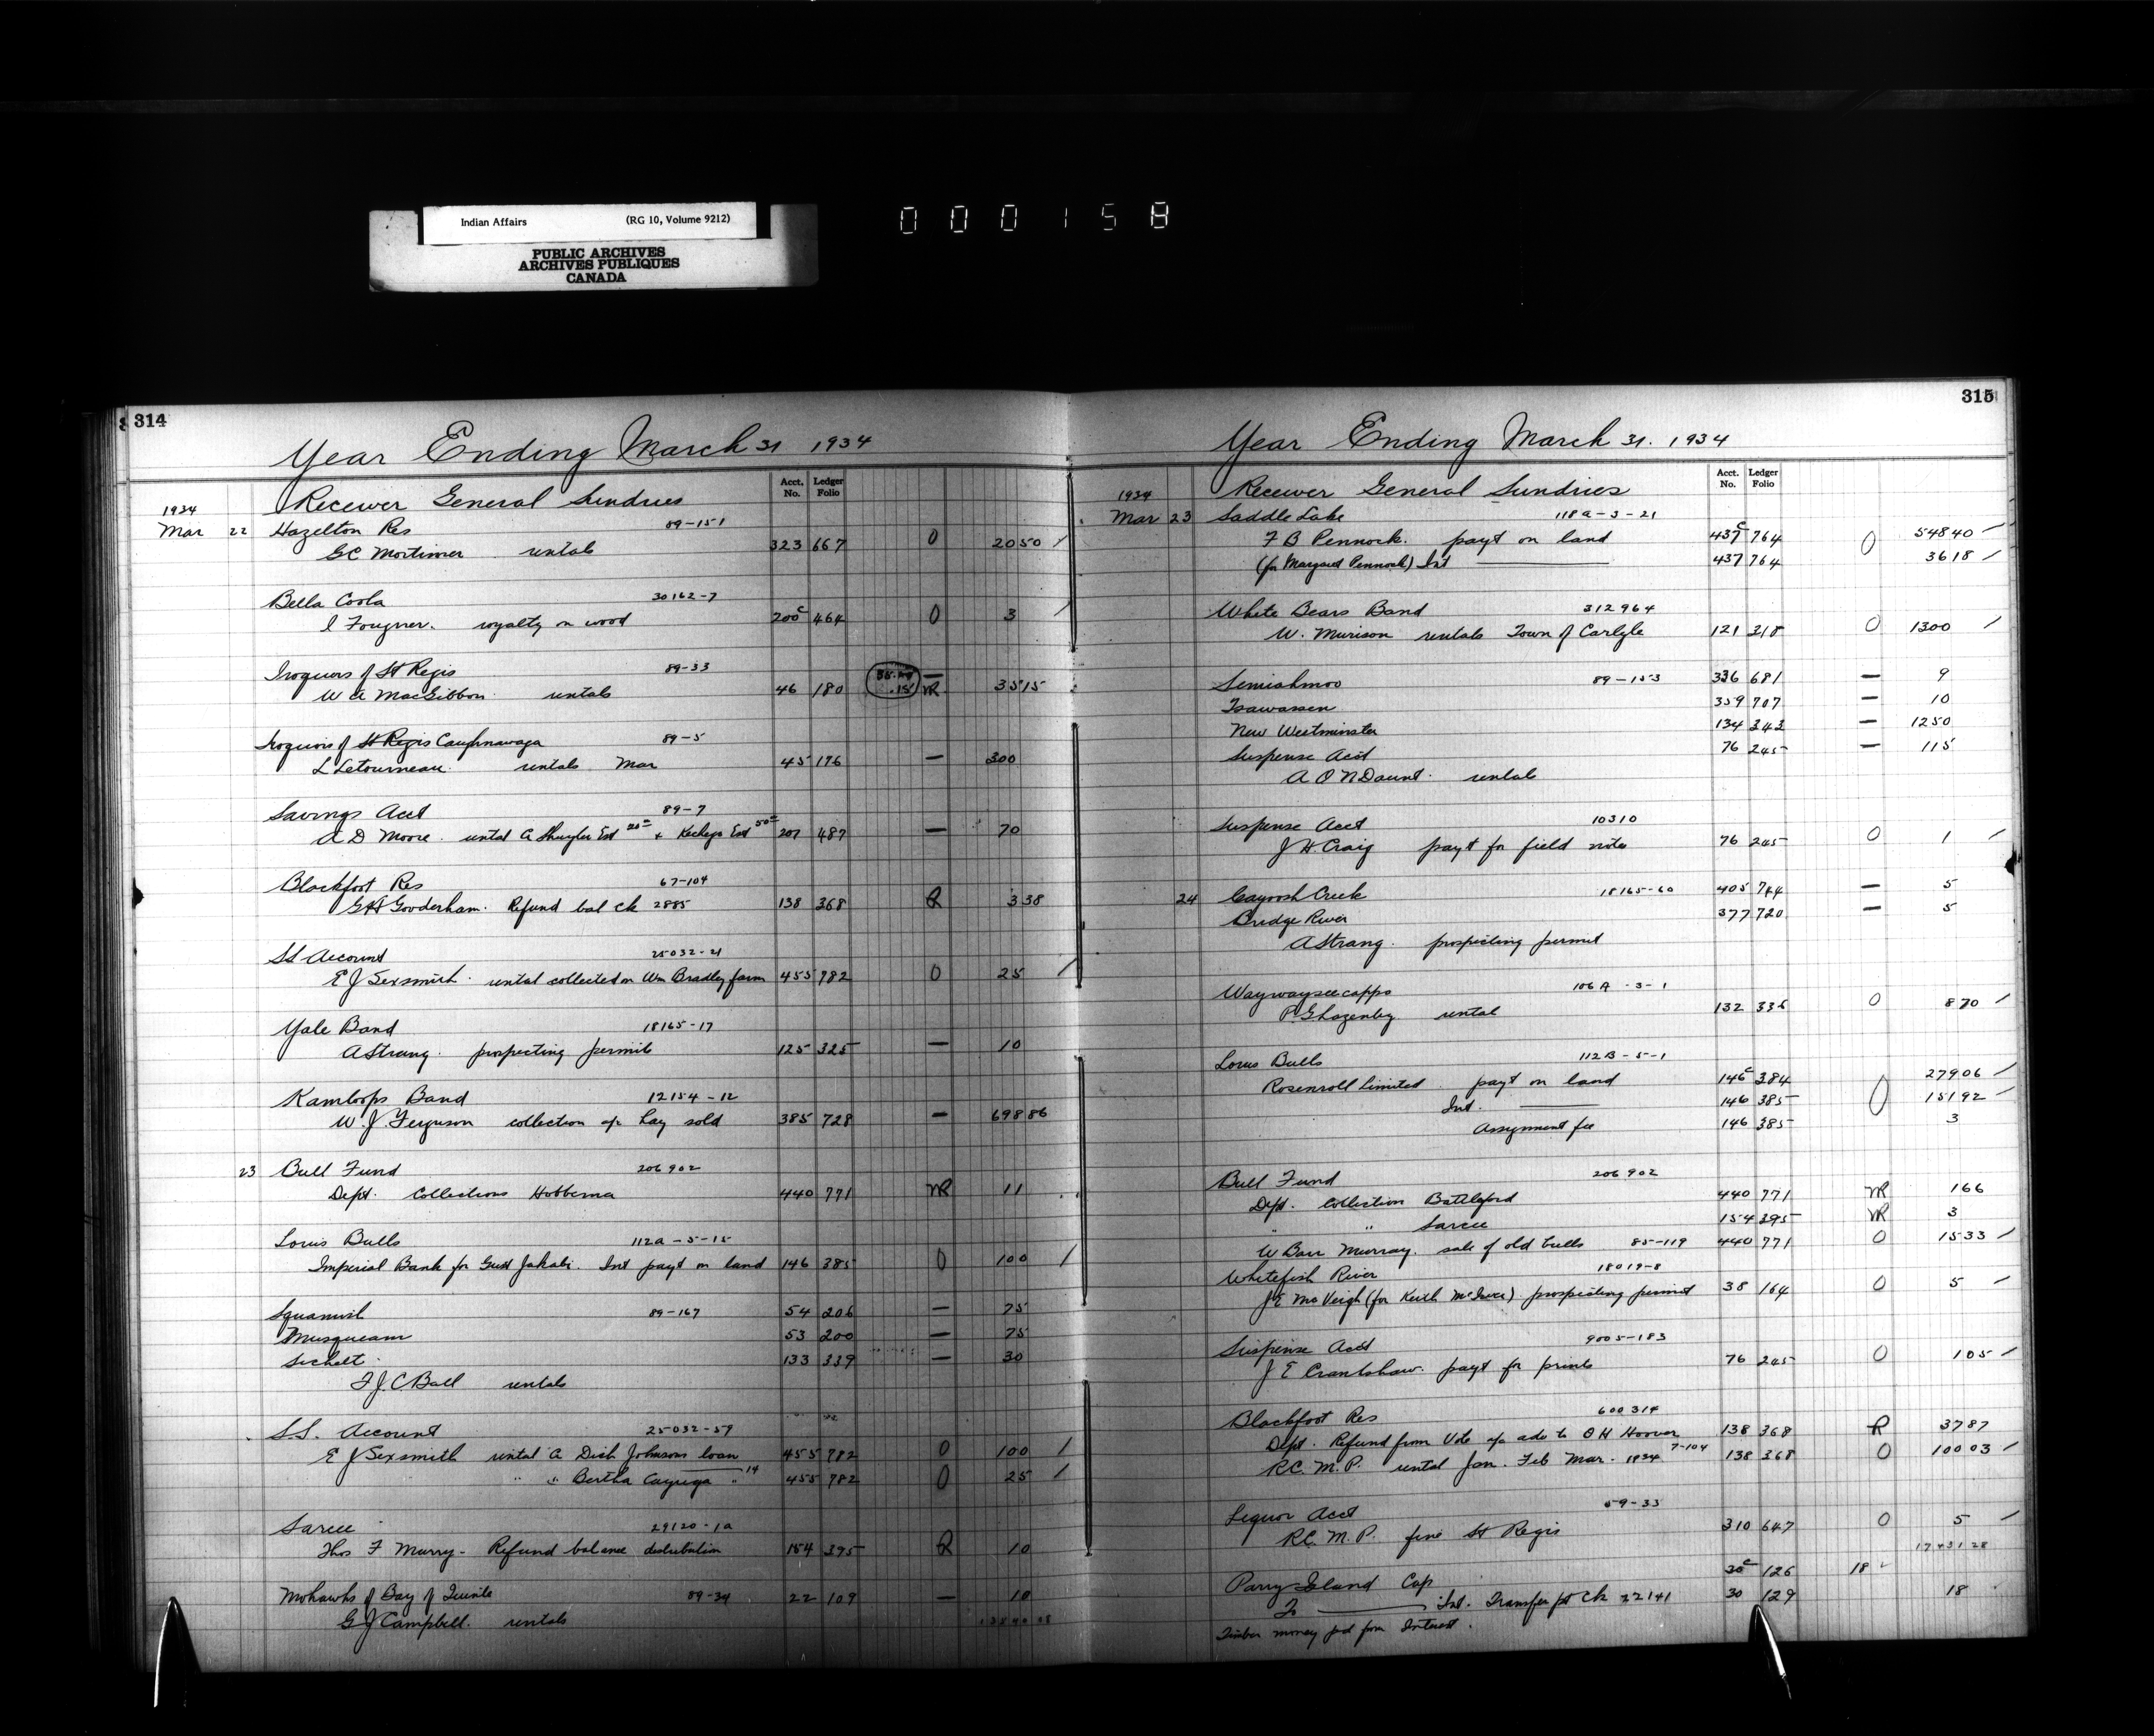 Indian Affairs (RG 10, Volume 9212)
PUBLIC ARCHIVES
ARCHIVES PUBLIQUES
CANADA
000158
314
Year Ending March 31 1934
Acct. No. Ledger Folio
1934 Receiver General Sundries
Mar 22 Hazelton Res 89-151
GC Mortimer rentals 323 667 O 20 50
Bella Coola 30162-7
I Fougner. royalty on wood 200c 464 O 3
Iroquois of St Regis 89-33
W A MacGibbon rentals 46 180 NR 35 15
Iroquois of St Regis Caughnawaga 89-5
L Letourneau. rentals Mar 45 176 — 300
Savings Acct 89-7
A D Moore. rental A Shuyler Est 20 + Kechego Est 50 207 487 — 70
Blackfoot Res 67-104
G H Gooderham. Refund bal ck 2885 138 368 R 3 38
SS Account 25032-21
E J Sexsmith. rental collected on Wm Bradley farm 455 782 O 25
Yale Band 18165-17
A Strang. prospecting permit 125 325 — 10
Kamloops Band 12154-12
W. J. Ferguson collection a/c hay sold 385 728 — 698 86
23 Bull Fund 206902
Dept. Collections Hobbema 440 771 NR 11
Louis Bulls 112a-5-15
Imperial Bank for Gust Jakabi. Int payt on land 146 385 O 100
Squamish 89-167 54 206 — 75
Musqueam 53 200 — 75
Sechelt 133 339 — 30
F. J. C. Ball rentals
S.S. Account 25032-59
E J Sexsmith rental A Dick Johnsons loan 455 782 O 100
" " Bertha Cayuga " 14 455 782 O 25
Sarcee 29120-1a
Thos F Murry - Refund balance distribution 154 395 R 10
Mohawks of Bay of Quinte 89-34 22 109 — 10
G J Campbell. rentals
315
Year Ending March 31. 1934
Acct. No. Ledger Folio
1934 Receiver General Sundries
Mar 23 Saddle Lake 118a-3-21
F B Pennock. payt on land 437c 764 O 548 40
(for Margaret Pennock) Int 437 764 36 18
White Bears Band 312964
W. Murison rentals Town of Carlyle 121 318 O 13 00
Semiahmoo 89-153 336 681 — 9
Tsawassen 359 707 — 10
New Westminster 134 343 — 12 50
Suspense Acct 76 245 — 1 15
A O'N Daunt. rentals
Suspense Acct 10310
J H Craig payt for field notes 76 245 O 1
24 Cayoosh Creek 18165-60 405 744 — 5
Bridge River 377 720 — 5
A Strang. prospecting permit
Waywayseecappo 106A-3-1
P G Lazenby rental 132 336 O 8 70
Louis Bulls 112B-5-1
Rosenroll Limited. payt on land 146c 384 279 06
Int. 146 385 O 151 92
Assignment fee 146 385 3
Bull Fund 206902
Dept. collection Battleford 440 771 NR 166
" " Sarcee 154 395 NR 3
W Barr Murray. sale of old bulls 85-119 440 771 O 15 33
Whitefish River 18019-8
J E McVeigh (for Keith McIver) prospecting permit 38 164 O 5
Suspense Acct 9005-183
J E Crankshaw. payt for prints 76 245 O 1 05
Blackfoot Res 600314
Dept. Refund from Vote a/c adv to O H Hoover 138 368 R 37 87
R.C.M.P. rental Jan. Feb Mar. 1934 7-104 138 368 O 100 03
Liquor Acct 59-33
R.C.M.P. fine St Regis 310 647 O 5
17431 28
Parry Island Cap 30c 126 18
To Int. Transfer pt ck 22141 30 129 18
Timber money pd from Interest.